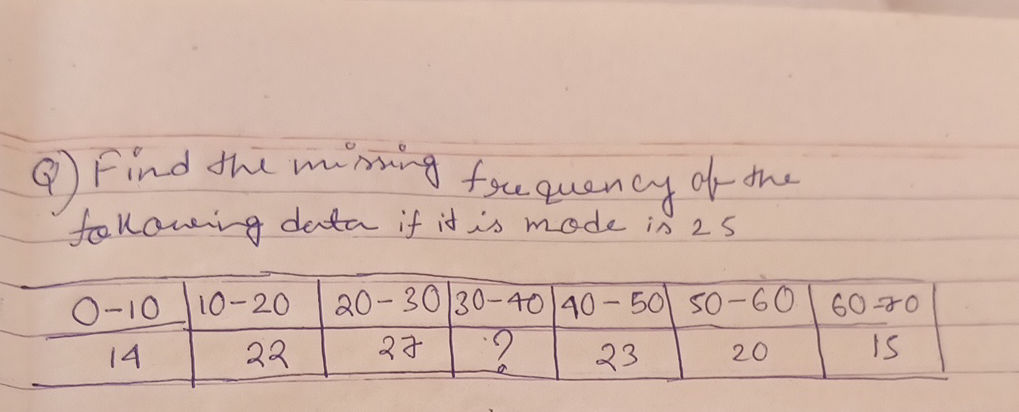 Q) Find the missing frequency of the
following data if it is mode is 25
0-10 10-20 20-30 30-40 40-50 50-60 60-70
14 22 27 ? 23 20 15